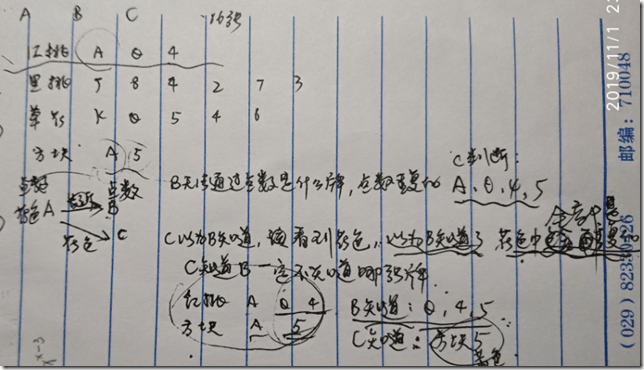 A B C 16张
红桃 A Q 4
黑桃 J 8 4 2 7 3
草花 K Q 5 4 6
方块 A 5
C判断:
点数 点数 B无法通过点数是什么牌,点数重复的 A、Q、4、5
花色 A 告诉 B
花色 C
C以为B知道, 看到花色, 以为B知道了 花色中
C知道B一定不知道哪张牌
红桃 A Q 4 B知道:Q,4,5
方块 A 5 C知道:方块5
x-3
2019/11/1 2
邮编:710048
(029) 82330426